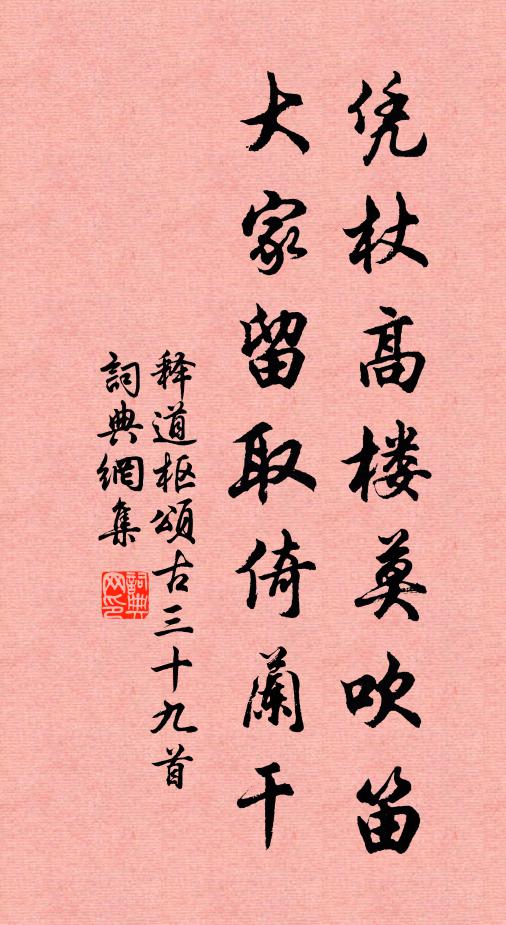 凭杖高楼莫吹笛
大家留取倚蘭干
释道枢頌古三十九首
詞典網集
詞典网印